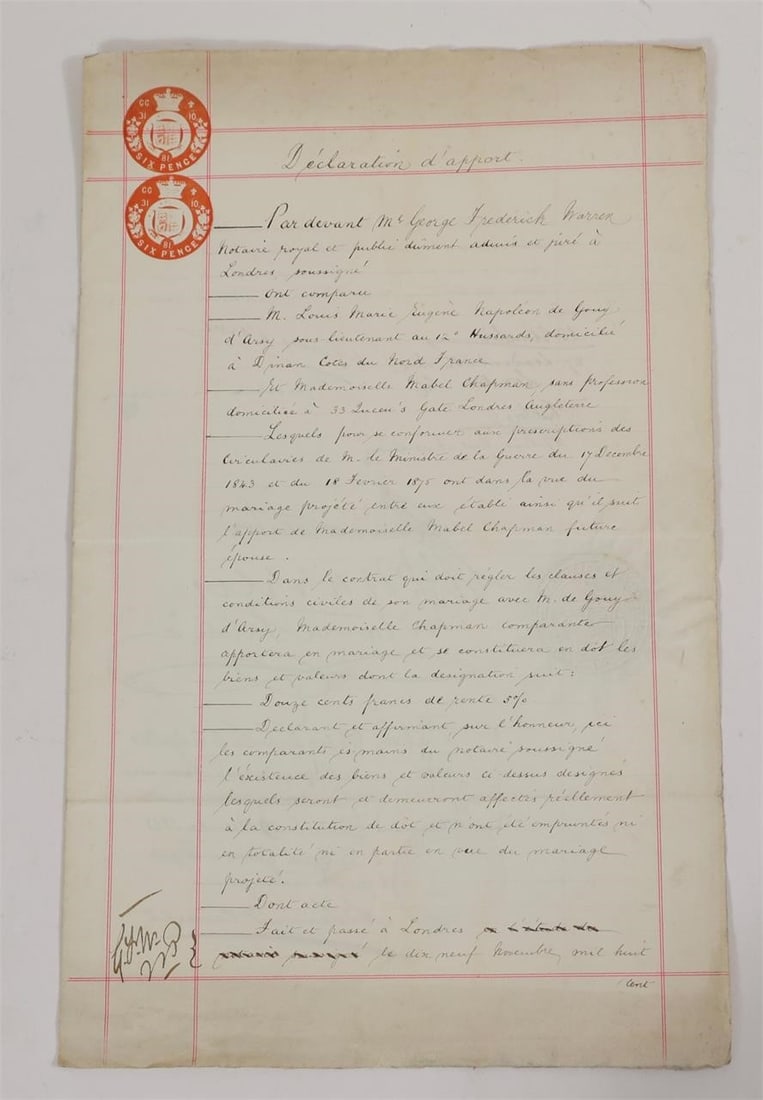 CC
31 10
81
SIX PENCE
CC
31 10
81
SIX PENCE
Déclaration d'apport.
Par devant Mr George Frederick Warren
Notaire royal et public dûment admis et juré à
Londres soussigné
Ont comparu
M. Louis Marie Eugène Napoléon de Gouy
d'Arsy sous-lieutenant au 12e Hussards, domicilié
à Dinan Cotes du Nord France
Et Mademoiselle Mabel Chapman, sans profession
domiciliée à 33 Queen's Gate Londres Angleterre
Lesquels pour se conformer aux prescriptions des
Circulaires de M. le Ministre de la Guerre du 17 Decembre
1843 et du 18 Fevrier 1875 ont dans la vue du
mariage projété entre eux établi ainsi qu'il suit
l'apport de Mademoiselle Mabel Chapman future
épouse.
Dans le contrat qui doit régler les clauses et
conditions civiles de son mariage avec M. de Gouy
d'Arsy, Mademoiselle Chapman comparante
apportera en mariage et se constituera en dot les
biens et valeurs dont la designation suit:
Douze cents francs de rente 5%
Déclarant et affirmant, sur l'honneur, ici
les comparants es mains du notaire soussigné
l'éxistence des biens et valeurs ci-dessus designés
lesquels seront et demeurront affectés réellement
à la constitution de dôt et n'ont été empruntés ni
en totalité ni en partie en vue du mariage
projeté.
Dont acte
Fait et passé à Londres
le dix neuf Novembre, mil huit
cent